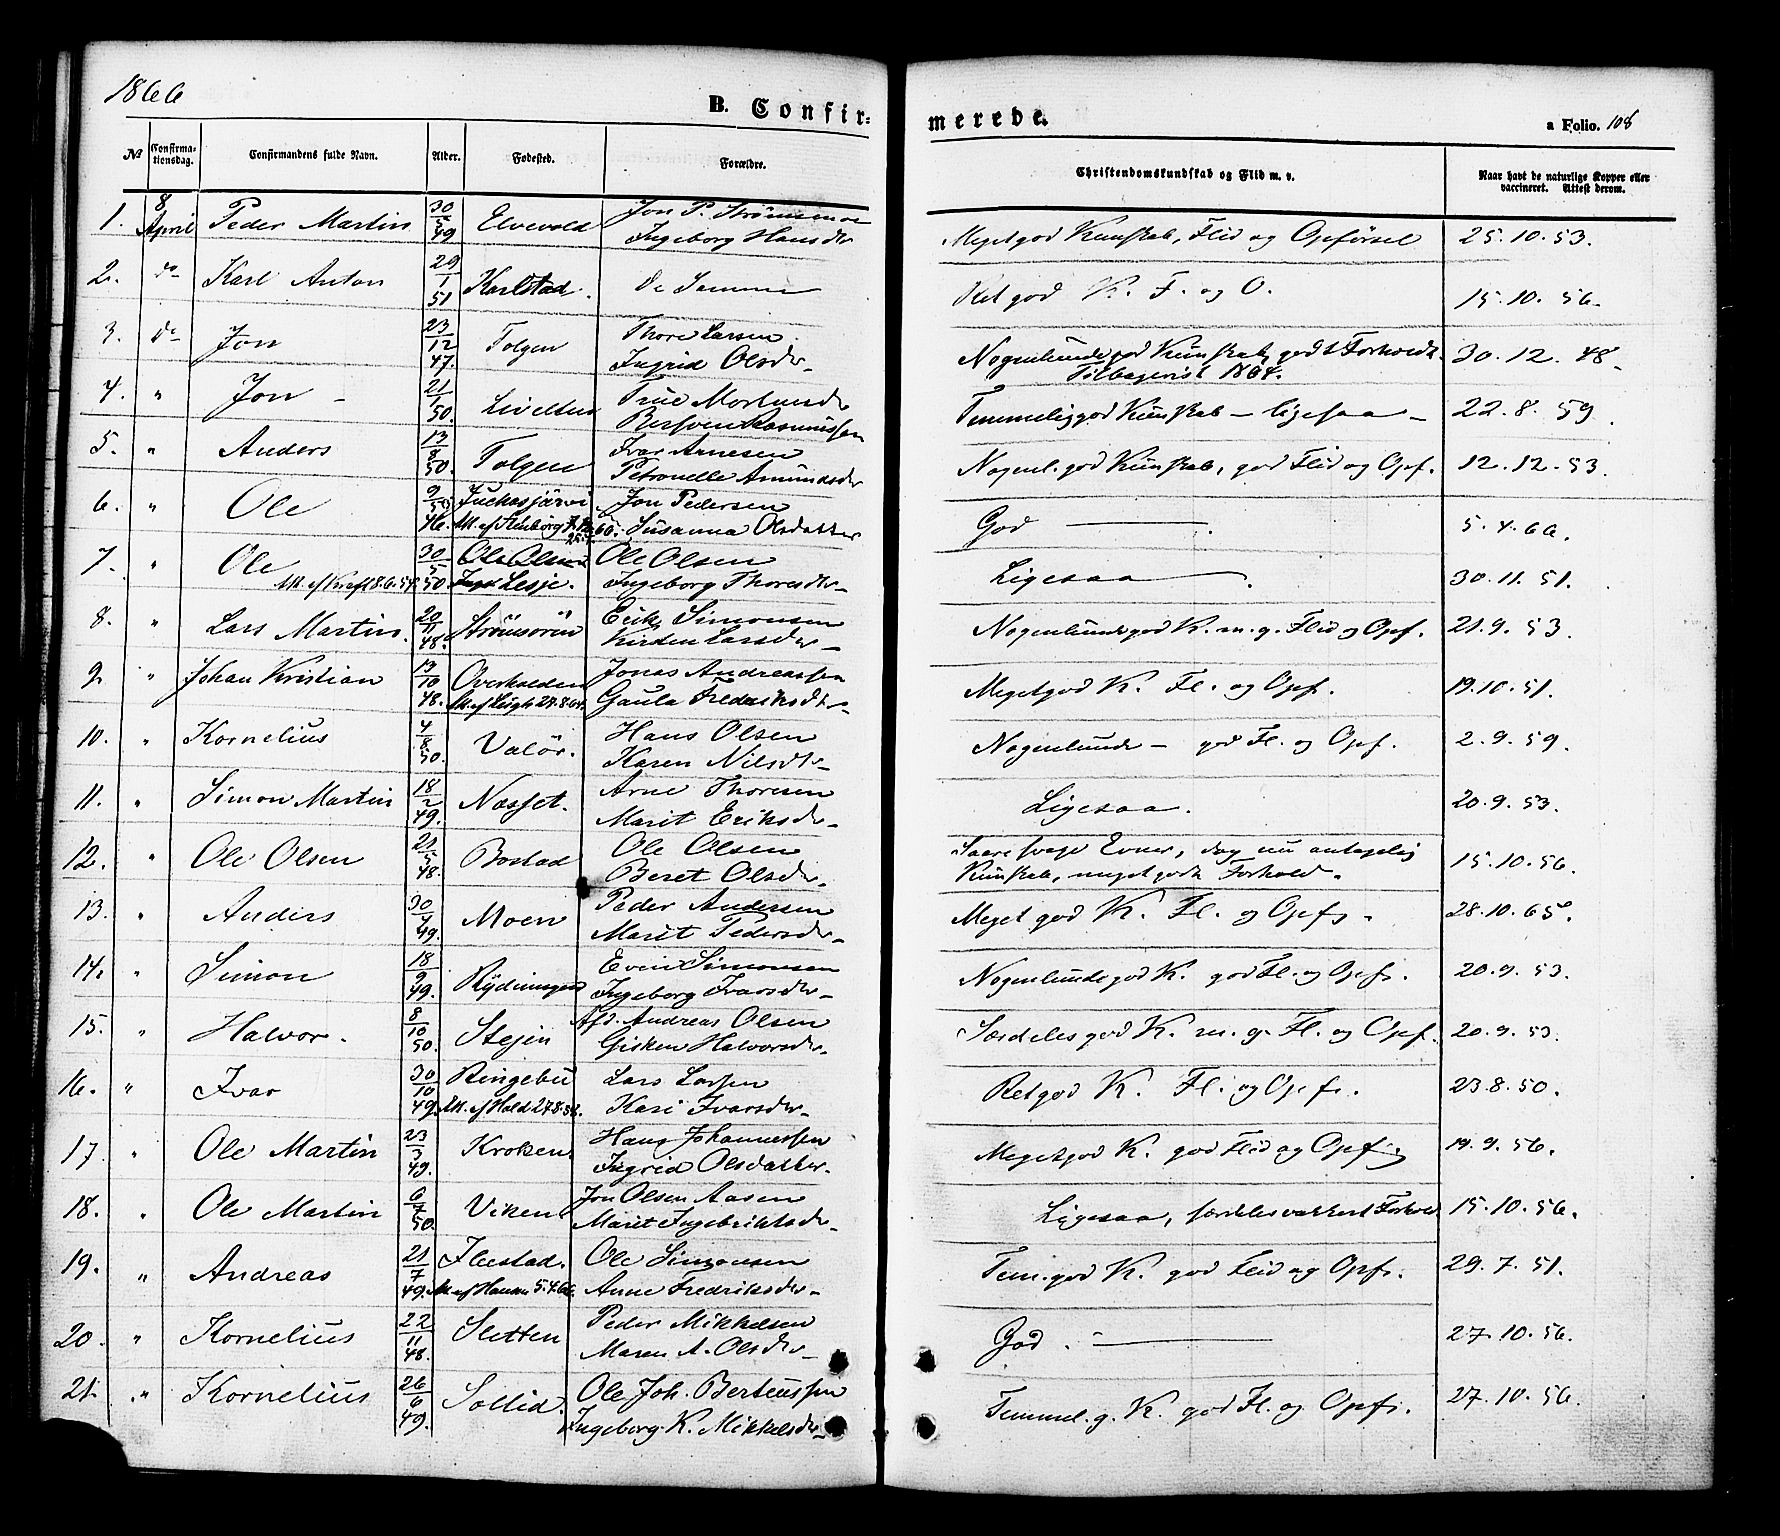 1866
B. Confir=
merede.
a Folio. 108
No
Confirma-
tionsdag.
Confirmandens fulde Navn.
Alder.
Fødested.
Forældre.
Christendomskundskab og Flid m. v.
Naar havt de naturlige Kopper eller
vaccineret. Attest derom.
1. 8 April Peder Martin 30/5 49 Elvevold Jon P. Strømsmoe
Ingeborg Hansdtr
Megetgod Kunskab, Flid og Opførsel 25.10.53.
2. do Karl Anton 29/1 51 Karlstad. De Samme
Ret god K. F. og O. 15.10.56.
3. do Jon 23/12 47. Folgen Thore Larsen
Ingrid Olsdr
Nogenlunde god Kunskab, godt Forhold.
Tilbagevist 1864.
30.12.48
4. " Jon 21/1 50. True Mortensdr
Rasmussen
Temmelig god Kunskab - ligesaa - 22.8.59.
5. " Anders 13/8 50. Folgen Ivar Arnesen
Petronelle Amundsdr
Nogenl. god Kunskab, god Flid og Opf. 12.12.53.
6. " Ole 9/ 46. Juckasjärvi Jon Pedersen
Susanna Olsdatter
God 5.4.66.
7. " Ole 30/5 50 Ole Olsen Ole Olsen
Att. af Kraft 8.6.54. Lesje. Ingeborg Thoresdtr
Ligesaa 30.11.51.
8. " Lars Martin. 20/11 48. Strømsøren Erik Simonsen
Kirsten Larsdr
Nogenlunde god K. m. g. Flid og Opf. 21.9.53.
9. " Johan Kristian 13/10 48. Overhalden Jonas Andreassen
28.8.64. Gaula Fredriksdtr
Megetgod K. Fl. og Opf. 19.10.51.
10. " Kornelius 4/8 50. Valør. Hans Olsen
Karen Nilsdtr
Nogenlunde - god Fl. og Opf. 2.9.59.
11. " Simon Martin 18/2 49. Næsset. Arne Thoresen
Marit Eriksdr
Ligesaa. 20.9.53.
12. " Ole Olsen 21/5 48. Bostad Ole Olsen
Beret Olsdr.
Saare svage Evner, dog nu antagelig
Kunskab, meget godt Forhold.
15.10.56.
13. " Anders 30/4 49. Moen Peder Andersen
Marit Pedersdr
Meget god K. Fl. og Opf. 28.10.65.
14. " Simon 18/9 49. Rydningen Even Simonsen
Ingeborg Ivarsdr
Nogenlunde god K. god Fl. og Opf. 20.9.53.
15. " Halvor. 8/10 50. Stejen Afd. Andreas Olsen
Gisken Halvorsdr.
Særdeles god K. m. g. Fl. og Opf. 20.9.53.
16. " Ivar 30/10 49. Ringebu Lars Larsen
Att. af Hald 27.8. Kari Ivarsdr
Ret god K. Fl. og Opf. 23.8.50.
17. " Ole Martin 23/3 49. Kroken Hans Johannessen
Ingrid Olsdatter.
Megetgod K. god Flid og Opf. 19.9.56.
18. " Ole Martin 6/7 50. Viken Jon Olsen Aasen
Marit Ingebriktsdr
Ligesaa, særdeles vakkert Forhold 15.10.56.
19. " Andreas 21/7 49. Flestad. Ole Simonsen
Att. af Hansen 5.4.66. Anne Fredriksdr
Tem. god K. god Flid og Opf. 29.7.51.
20. " Kornelius 22/11 48. Sletten Peder Mikkelsen
Maren A. Olsdr
God. 27.10.56.
21. " Kornelius 26/6 49. Sollid. Ole Joh. Berteussen
Ingeborg K. Mikkelsdr
Temmel. g. K. god Fl. og Opf. 27.10.56.